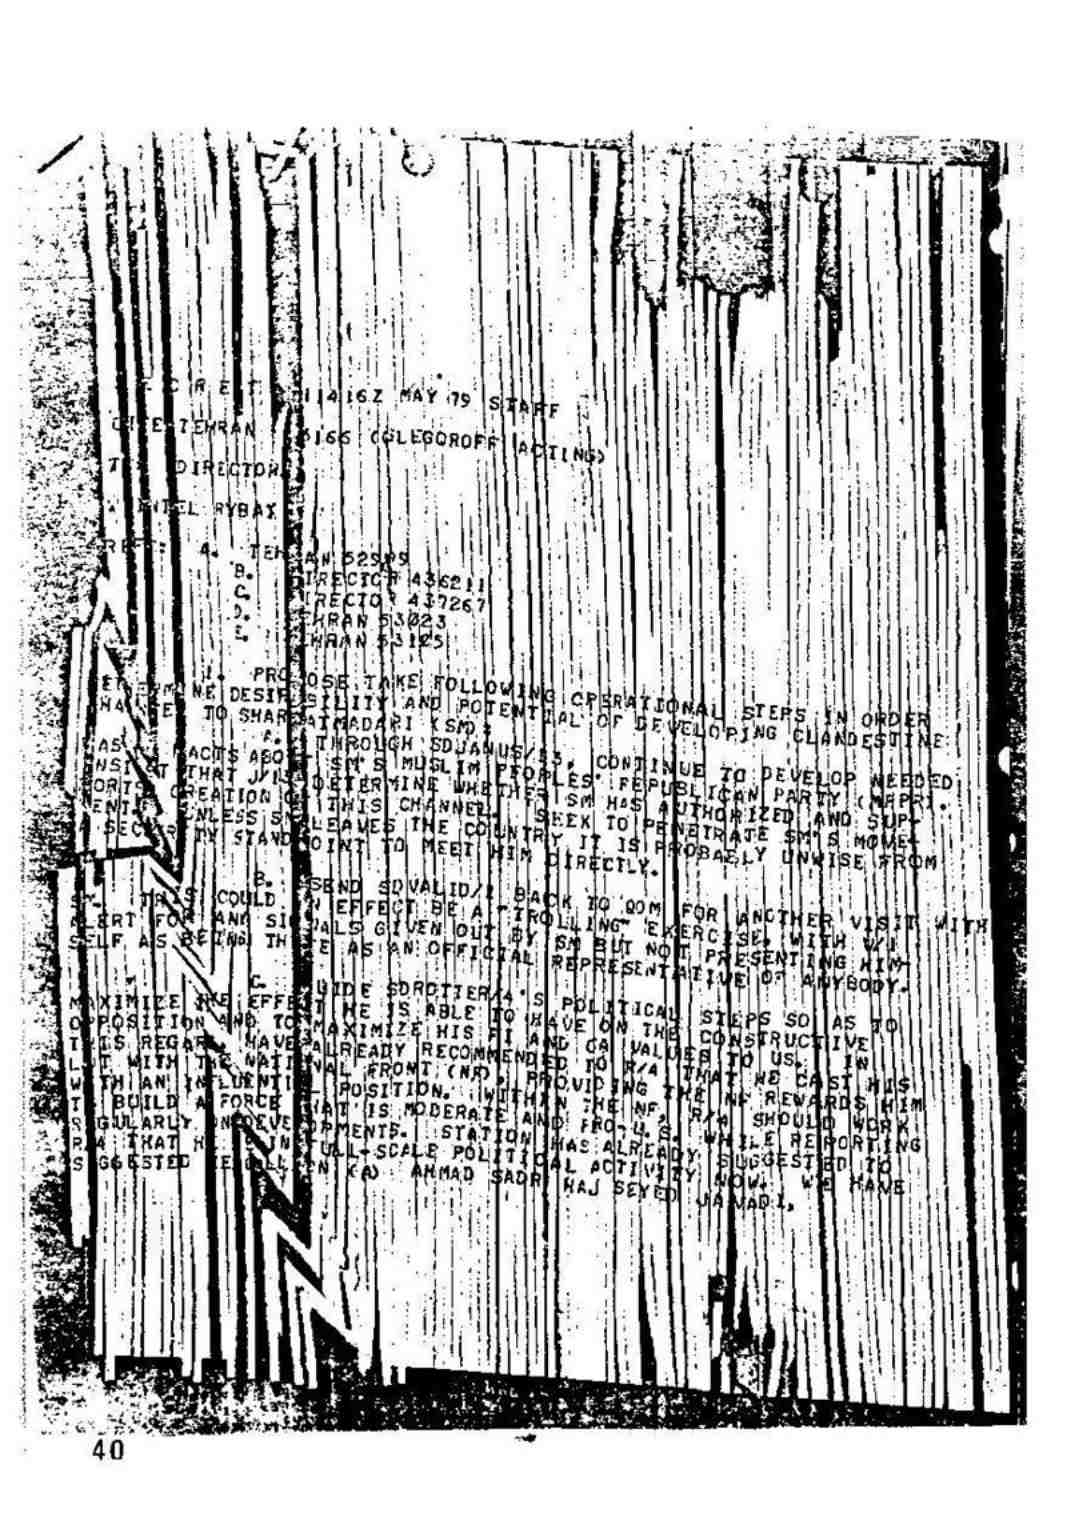 C R E T 11416Z MAY 79 STAFF
CITE TEHRAN 3166 (GLEGOROFF ACTING)
DIRECTOR
INTEL RYBAT
REFS: A. TEHRAN 52989
B. DIRECTOR 436211
C. DIRECTOR 437267
D. TEHRAN 53023
E. TEHRAN 53125
1. PROPOSE TAKE FOLLOWING OPERATIONAL STEPS IN ORDER
DETERMINE DESIRABILITY AND POTENTIAL OF DEVELOPING CLANDESTINE
TO SHARIATMADARI (SM):
A. THROUGH SDJANUS/13, CONTINUE TO DEVELOP NEEDED
FACTS ABOUT SM'S MUSLIM PEOPLES' REPUBLICAN PARTY (MPRP).
THAT DETERMINE WHETHER SM HAS AUTHORIZED AND SUP-
CREATION OF THIS CHANNEL. SEEK TO PENETRATE SM'S MOVE-
UNLESS SM LEAVES THE COUNTRY IT IS PROBABLY UNWISE FROM
A SECURITY STANDPOINT TO MEET HIM DIRECTLY.
B. SEND SDVALID/1 BACK TO QOM FOR ANOTHER VISIT WITH
SM. THIS COULD IN EFFECT BE A "TROLLING" EXERCISE, WITH V/1
ALERT FOR ANY SIGNALS GIVEN OUT BY SM BUT NOT PRESENTING HIM-
SELF AS BEING THERE AS AN OFFICIAL REPRESENTATIVE OF ANYBODY.
C. GUIDE SDROTTER/4'S POLITICAL STEPS SO AS TO
MAXIMIZE THE EFFECT HE IS ABLE TO HAVE ON THE CONSTRUCTIVE
OPPOSITION AND TO MAXIMIZE HIS FI AND CA VALUES TO US. IN
THIS REGARD HAVE ALREADY RECOMMENDED TO R/4 THAT HE CAST HIS
LOT WITH THE NATIONAL FRONT (NF), PROVIDING THE NF REWARDS HIM
WITH AN INFLUENTIAL POSITION. WITHIN THE NF, R/4 SHOULD WORK
TO BUILD A FORCE THAT IS MODERATE AND PRO-U.S. WHILE REPORTING
REGULARLY ON DEVELOPMENTS. STATION HAS ALREADY SUGGESTED TO
R/4 THAT HE FULL-SCALE POLITICAL ACTIVITY NOW. WE HAVE
SUGGESTED HE CALL ON (A) AHMAD SADR HAJ SEYED JAVADI,
40